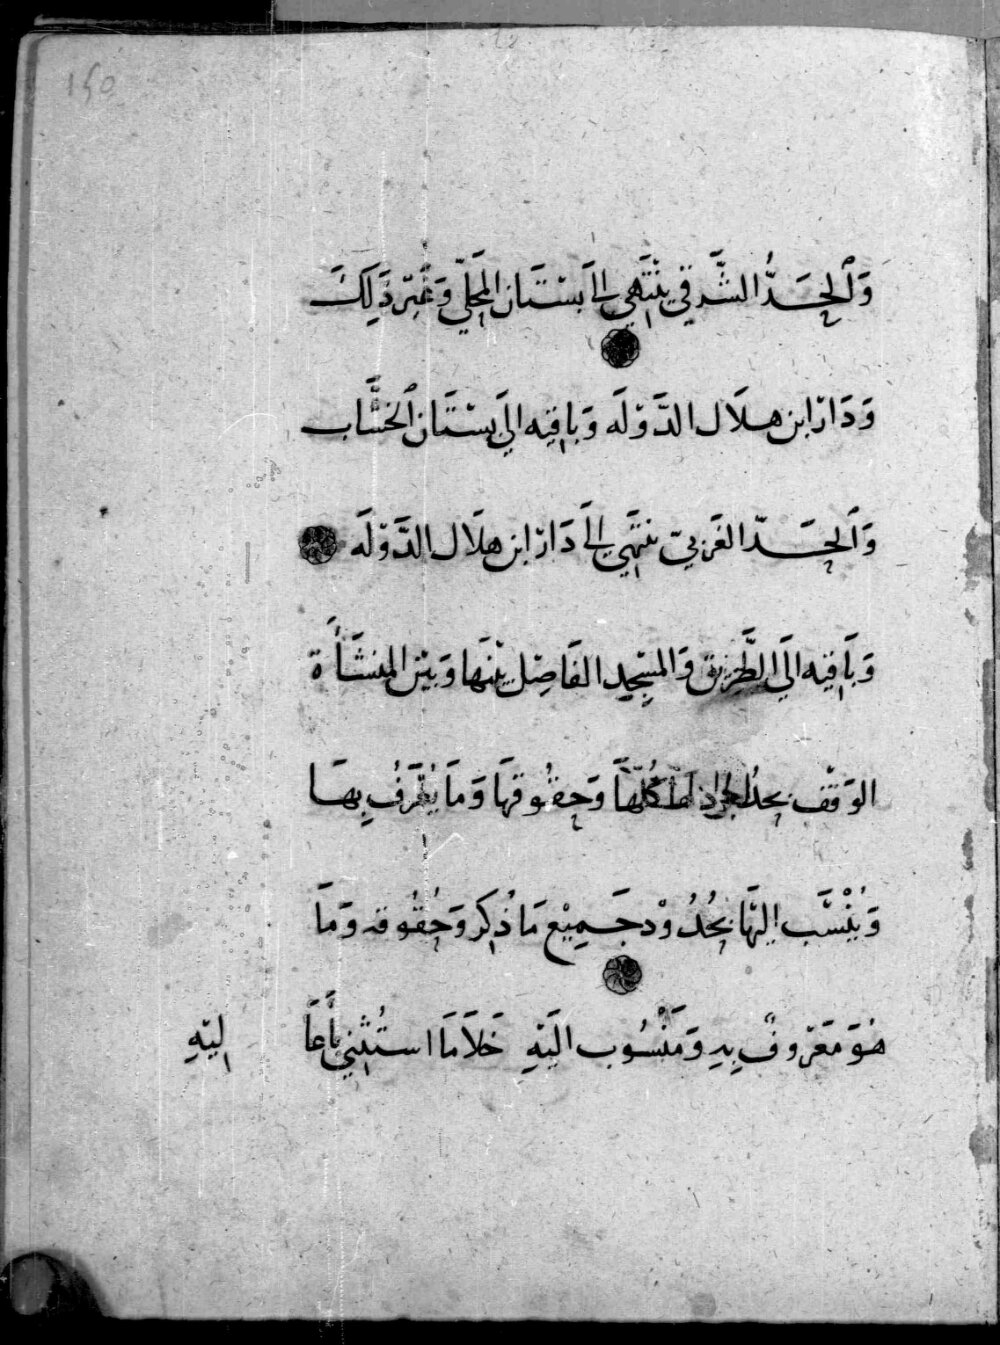 ١٤٥
وَالحَدُّ الشَّرقي يَنْتَهي إلىَ بسْتَان المحَلّي وَغَيرَ ذَلِكَ
وَدَارْ ابن هلَال الدَّوْلَه وَبَاقيه الىَ بسْتَان الخشَّاب
وَالحَدّ الغَربيّ ينتَهي إلىَ دَارْ ابن هلَال الدَّوْلَه
وَبَاقيه الىَ الطَّريق وَالمسْجِد الفَاصِل بيْنهَا وَبيْن المنشَأَة
الوَقْف بحدُ كُلّهَا وَحِقُوقهَا وَمَا يُعْرَفُ بِهَا
وَيُنْسَب اليْهَا بحُدُوْد جَمِيْع مَا ذُكِر وَحُقُوقه وَمَا
هُوَ مَعْرُوفٌ بِهِ وَمَنْسُوب اليَهِ خَلَا مَا استُثْنِي بَاعَاً
اليْهِ